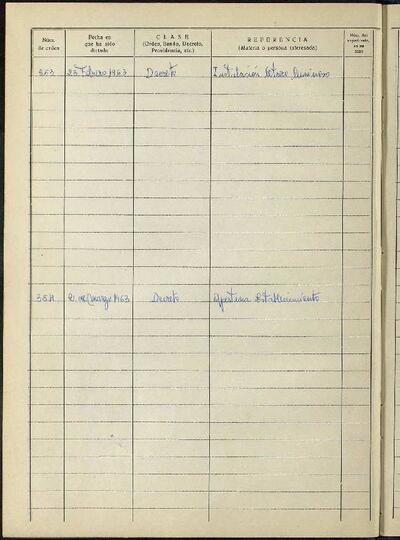 Núm. de orden
Fecha en que ha sido dictada
CLASE
(Orden, Bando, Decreto, Providencia, etc.)
REFERENCIA
(Materia o persona interesada)
Núm. del
23 Febrero 1963 Decreto Instalación luminoso
384 2 de Marzo 1963 Decreto Apertura Establecimiento